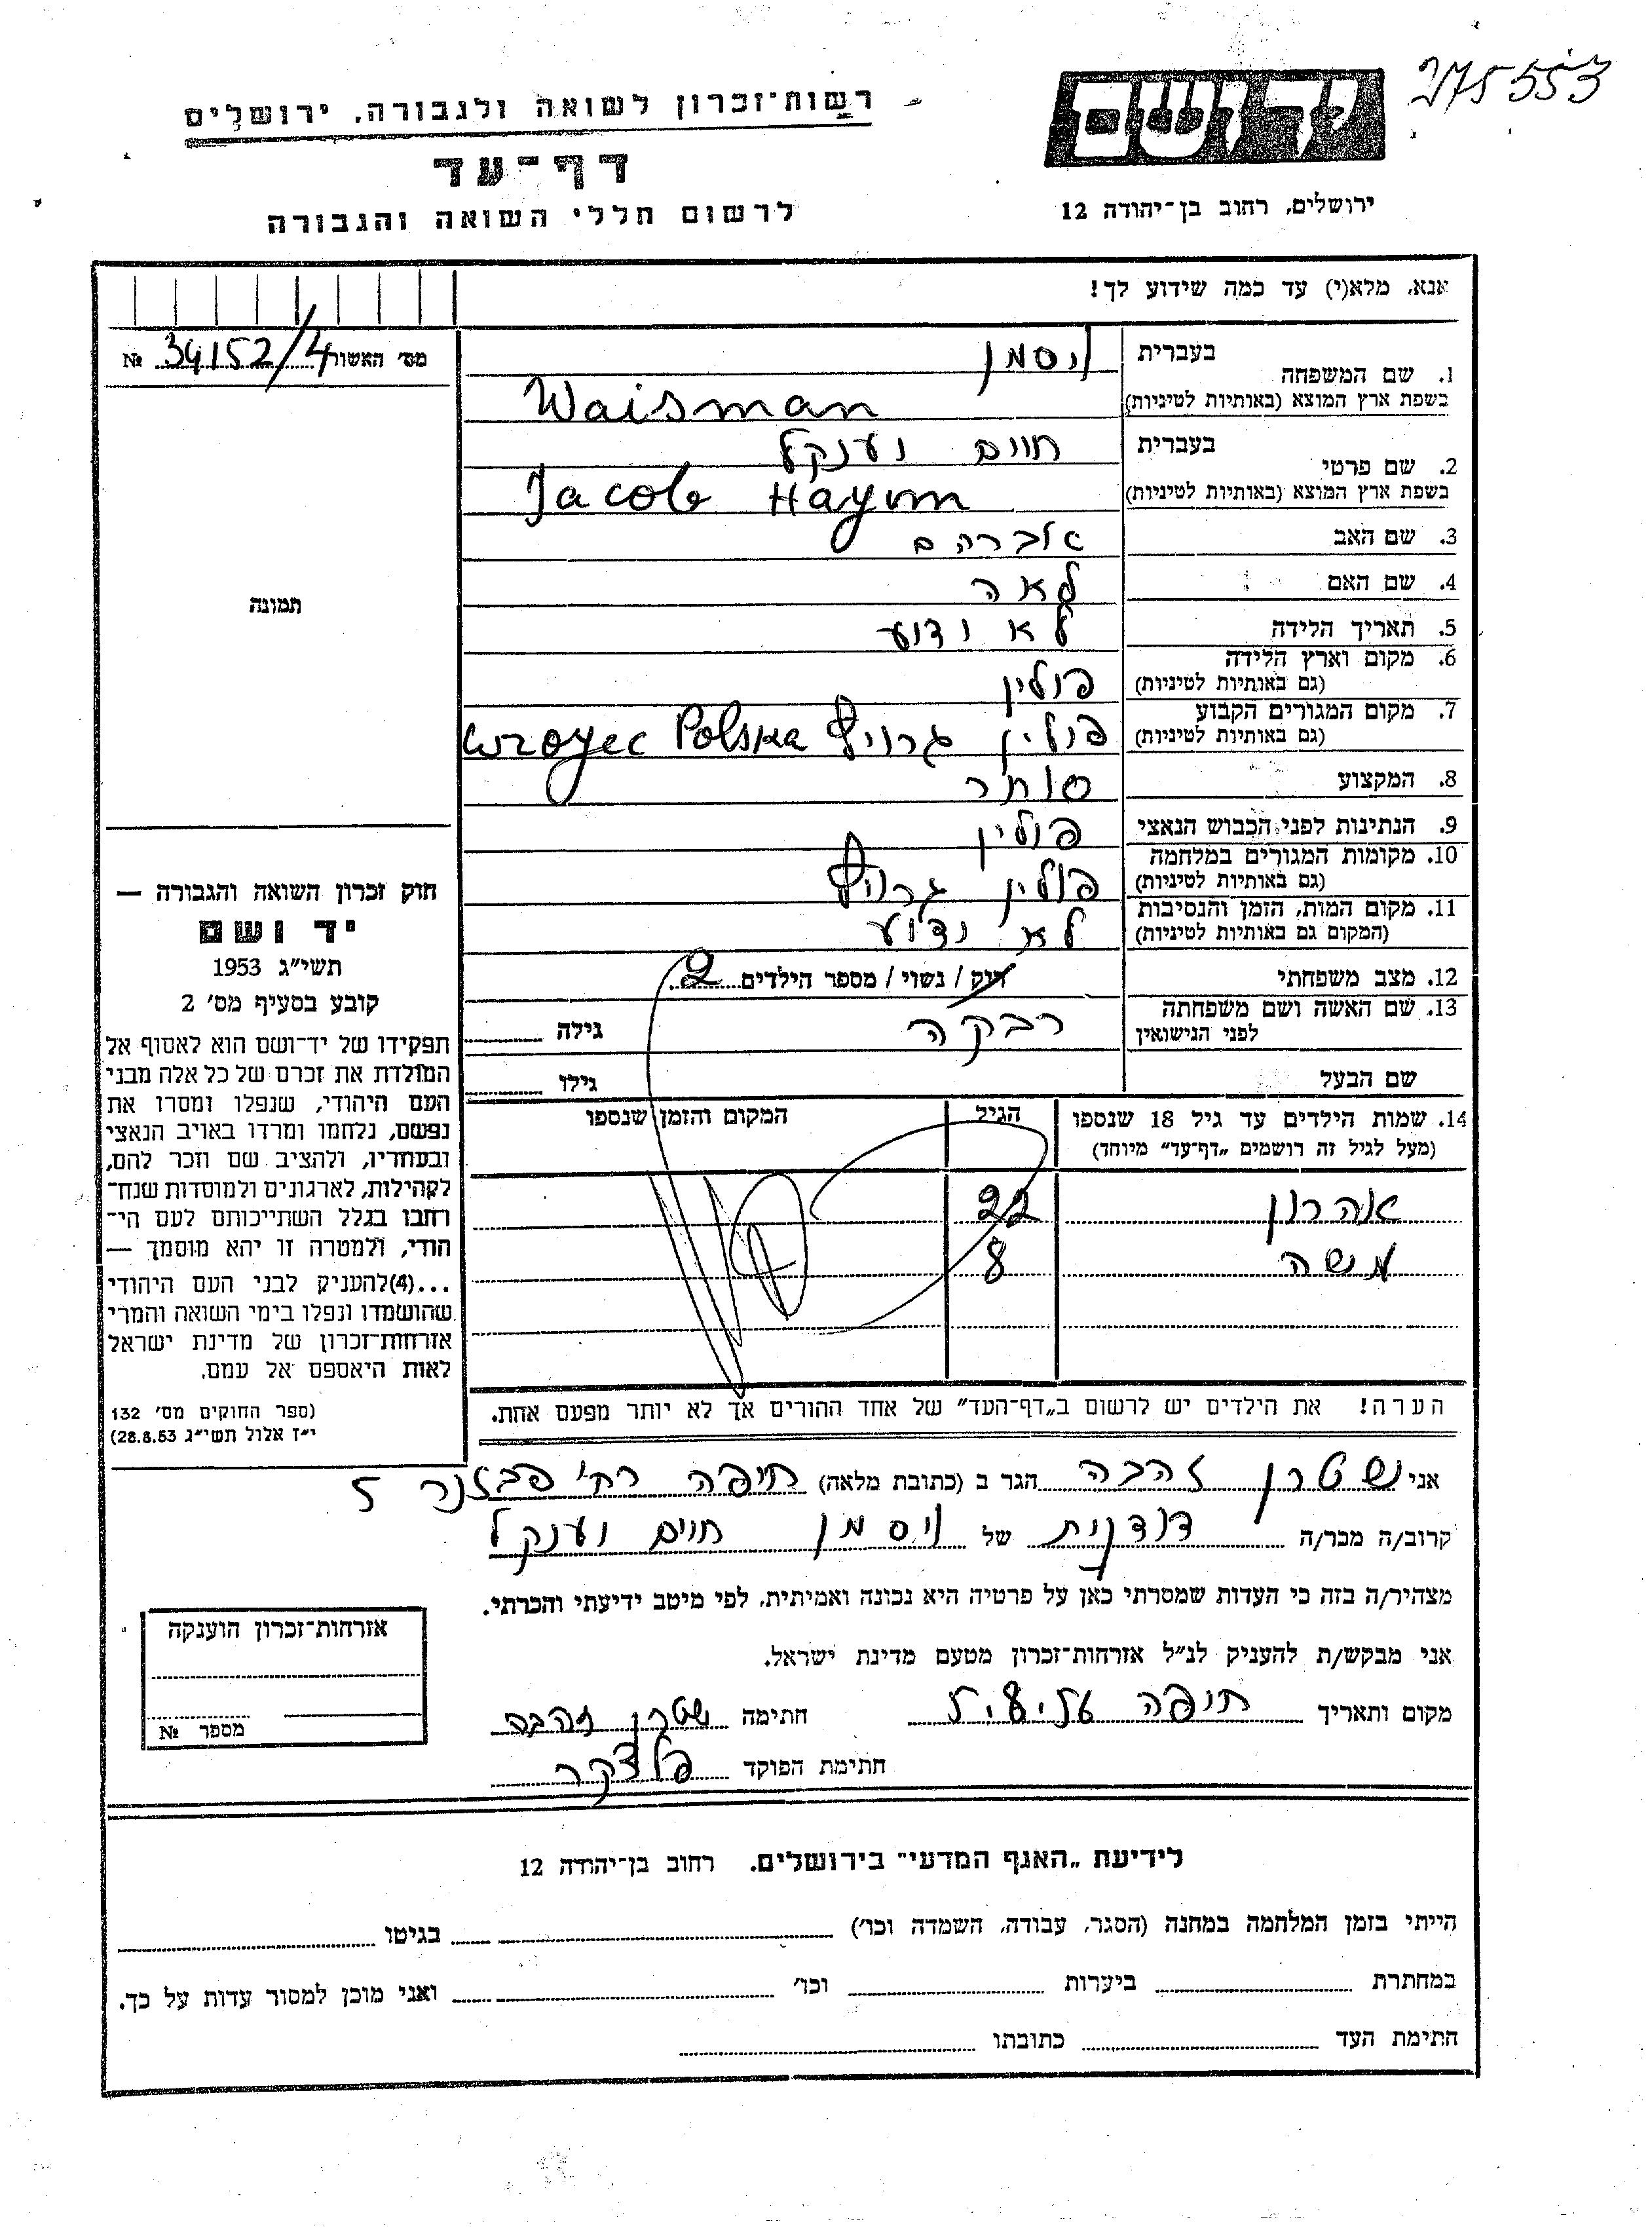 275553
יד ושם
רשות־זכרון לשואה ולגבורה, ירושלים
דף־עד
לרשום חללי השואה והגבורה
ירושלים, רחוב בן־יהודה 12
אנא, מלא(י) עד כמה שידוע לך!
מס׳ האשור 34152/4 №
תמונה
1. שם המשפחה
בעברית ויסמן
בשפת ארץ המוצא (באותיות לטיניות) Waisman
2. שם פרטי
בעברית חיים יענקל
בשפת ארץ המוצא (באותיות לטיניות) Jacob Haym
3. שם האב אברהם
4. שם האם לאה
5. תאריך הלידה לא ידוע
6. מקום וארץ הלידה
(גם באותיות לטיניות) פולין
7. מקום המגורים הקבוע
(גם באותיות לטיניות) פולין Polska
8. המקצוע סוחר
9. הנתינות לפני הכבוש הנאצי פולין
10. מקומות המגורים במלחמה
(גם באותיות לטיניות) פולין
11. מקום המות, הזמן והנסיבות
(המקום גם באותיות לטיניות) לא ידוע
12. מצב משפחתי רווק / נשוי / מספר הילדים 2
13. שם האשה ושם משפחתה
לפני הנישואין רבקה גילה
שם הבעל גילו
14. שמות הילדים עד גיל 18 שנספו הגיל המקום והזמן שנספו
(מעל לגיל זה רושמים „דף־עד” מיוחד)
אהרון 22
משה 8
הערה! את הילדים יש לרשום ב„דף־העד” של אחד ההורים אך לא יותר מפעם אחת.
חוק זכרון השואה והגבורה —
יד ושם
תשי״ג 1953
קובע בסעיף מס׳ 2
תפקידו של יד־ושם הוא לאסוף אל
המולדת את זכרם של כל אלה מבני
העם היהודי, שנפלו ומסרו את
נפשם, נלחמו ומרדו באויב הנאצי
ובעוזריו, ולהציב שם וזכר להם,
לקהילות, לארגונים ולמוסדות שנח־
רבו בגלל השתייכותם לעם הי־
הודי, ולמטרה זו יהא מוסמך —
...(4)להעניק לבני העם היהודי
שהושמדו ונפלו בימי השואה והמרי
אזרחות־זכרון של מדינת ישראל
לאות היאספם אל עמם.
(ספר החוקים מס׳ 132
י״ז אלול תשי״ג 28.8.53)
אני שטרן זהבה הגר ב (כתובת מלאה) חיפה רח׳ 5
קרוב/ה מכר/ה דודנית של ויסמן חיים יענקל
מצהיר/ה בזה כי העדות שמסרתי כאן על פרטיה היא נכונה ואמיתית, לפי מיטב ידיעתי והכרתי.
אני מבקש/ת להעניק לנ״ל אזרחות־זכרון מטעם מדינת ישראל.
מקום ותאריך חיפה חתימה שטרן זהבה
חתימת הפוקד
אזרחות־זכרון הוענקה
מספר №
לידיעת „האגף המדעי” בירושלים. רחוב בן־יהודה 12
הייתי בזמן המלחמה במחנה (הסגר, עבודה, השמדה וכו׳) בגיטו
במחתרת ביערות וכו׳ ואני מוכן למסור עדות על כך.
חתימת העד כתובתו